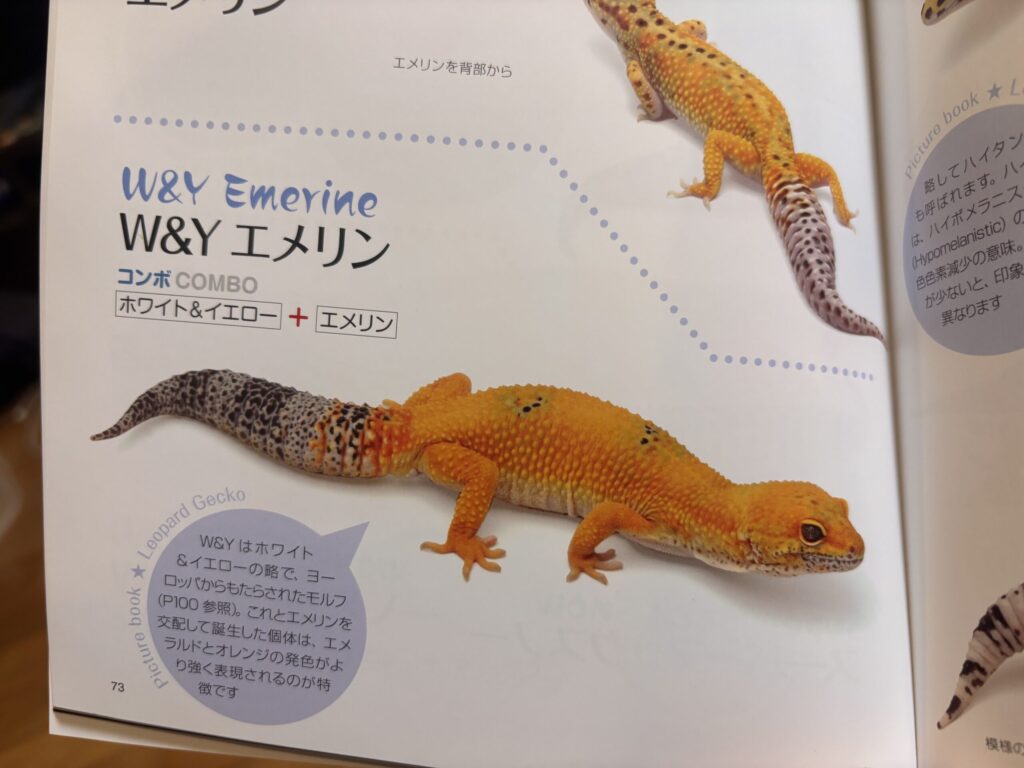 エメリン
エメリンを背部から
W&Y Emerine
W&Y エメリン
コンボ COMBO
ホワイト&イエロー + エメリン
Picture book ★ Leopard Gecko
W&Y はホワイト
&イエローの略で、ヨー
ロッパからもたらされたモルフ
(P100 参照)。これとエメリンを
交配して誕生した個体は、エメ
ラルドとオレンジの発色がよ
り強く表現されるのが特
徴です
73
Picture book ★ L
略してハイタン
も呼ばれます。ハイ
は、ハイポメラニス
(Hypomelanistic) の
色色素減少の意味。
が少ないと、印象
異なります
模様の